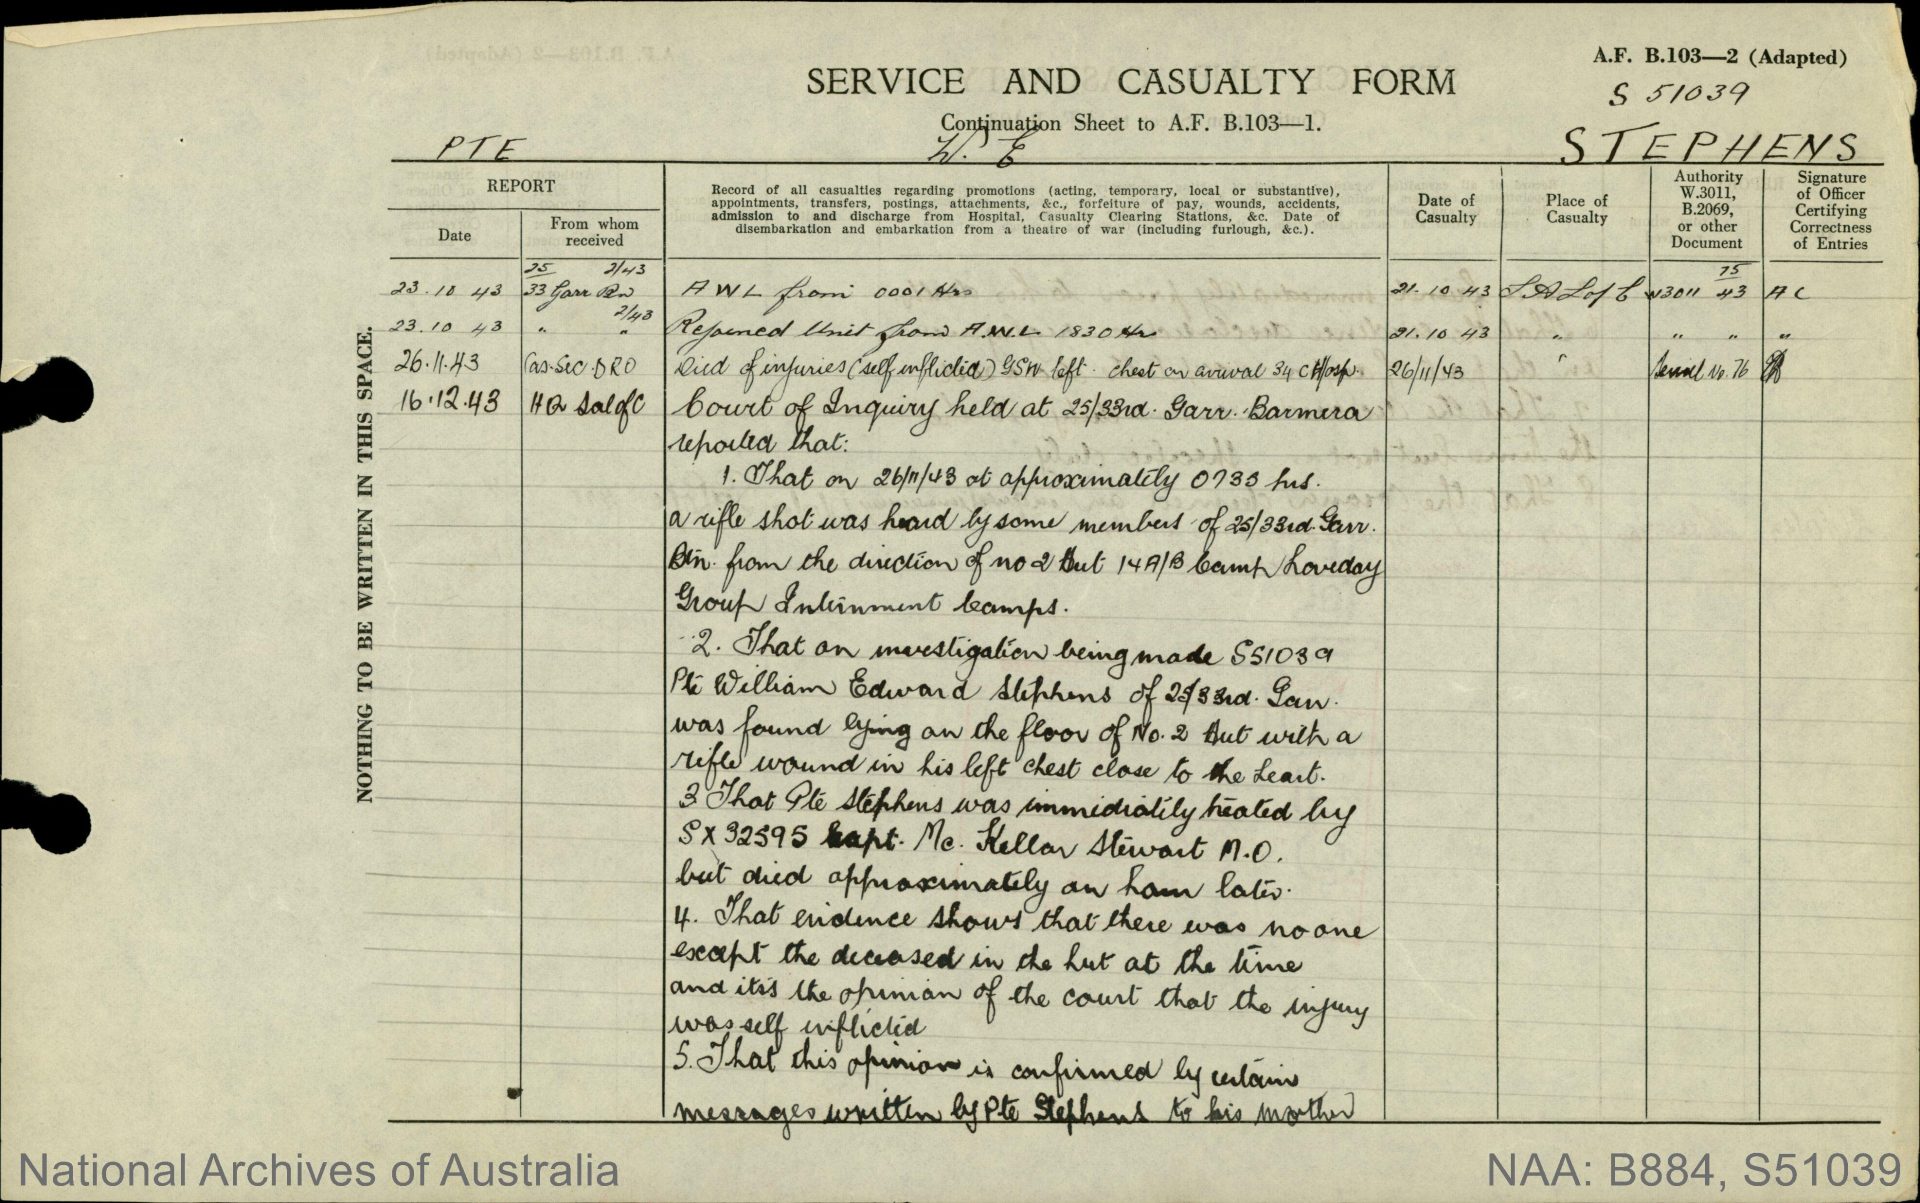 A.F. B.103—2 (Adapted)
SERVICE AND CASUALTY FORM
S 51039
Continuation Sheet to A.F. B.103—1.
PTE W. E STEPHENS
NOTHING TO BE WRITTEN IN THIS SPACE.
REPORT
Date
From whom
received
Record of all casualties regarding promotions (acting, temporary, local or substantive),
appointments, transfers, postings, attachments, &c., forfeiture of pay, wounds, accidents,
admission to and discharge from Hospital, Casualty Clearing Stations, &c. Date of
disembarkation and embarkation from a theatre of war (including furlough, &c.).
Date of
Casualty
Place of
Casualty
Authority
W.3011,
B.2069,
or other
Document
Signature
of Officer
Certifying
Correctness
of Entries
25 2/43 75
23.10 43 33 Garr Bn A W L from 0001 Hrs 21.10 43 S.A L of C W3011 43 A C
2/43
23.10 43 " " Rejoined Unit from A.W.L 1830 Hr 21.10 43 " " " "
26.11.43 Cas. Sec. DRO Died of injuries (self inflicted) GSW left chest on arrival 34 C Hosp. 26/11/43 " Serial No. 76
16.12.43 HQ Sal of C Court of Inquiry held at 25/33rd. Garr. Barmera
reported that:
1. That on 26/11/43 at approximately 0735 hrs.
a rifle shot was heard by some members of 25/33rd. Garr.
Btn. from the direction of no 2 Hut 14A/B Camp Loveday
Group Internment Camps.
2. That on investigation being made S51039
Pte William Edward Stephens of 25/33rd. Garr.
was found lying on the floor of No. 2 Hut with a
rifle wound in his left chest close to the heart.
3 That Pte Stephens was immediately treated by
SX 32595 Capt. Mc. Kellar Stewart M.O.
but died approximately an hour later.
4. That evidence shows that there was no one
except the deceased in the hut at the time
and it is the opinion of the court that the injury
was self inflicted
5. That this opinion is confirmed by certain
messages written by Pte Stephens to his mother
National Archives of Australia
NAA: B884, S51039